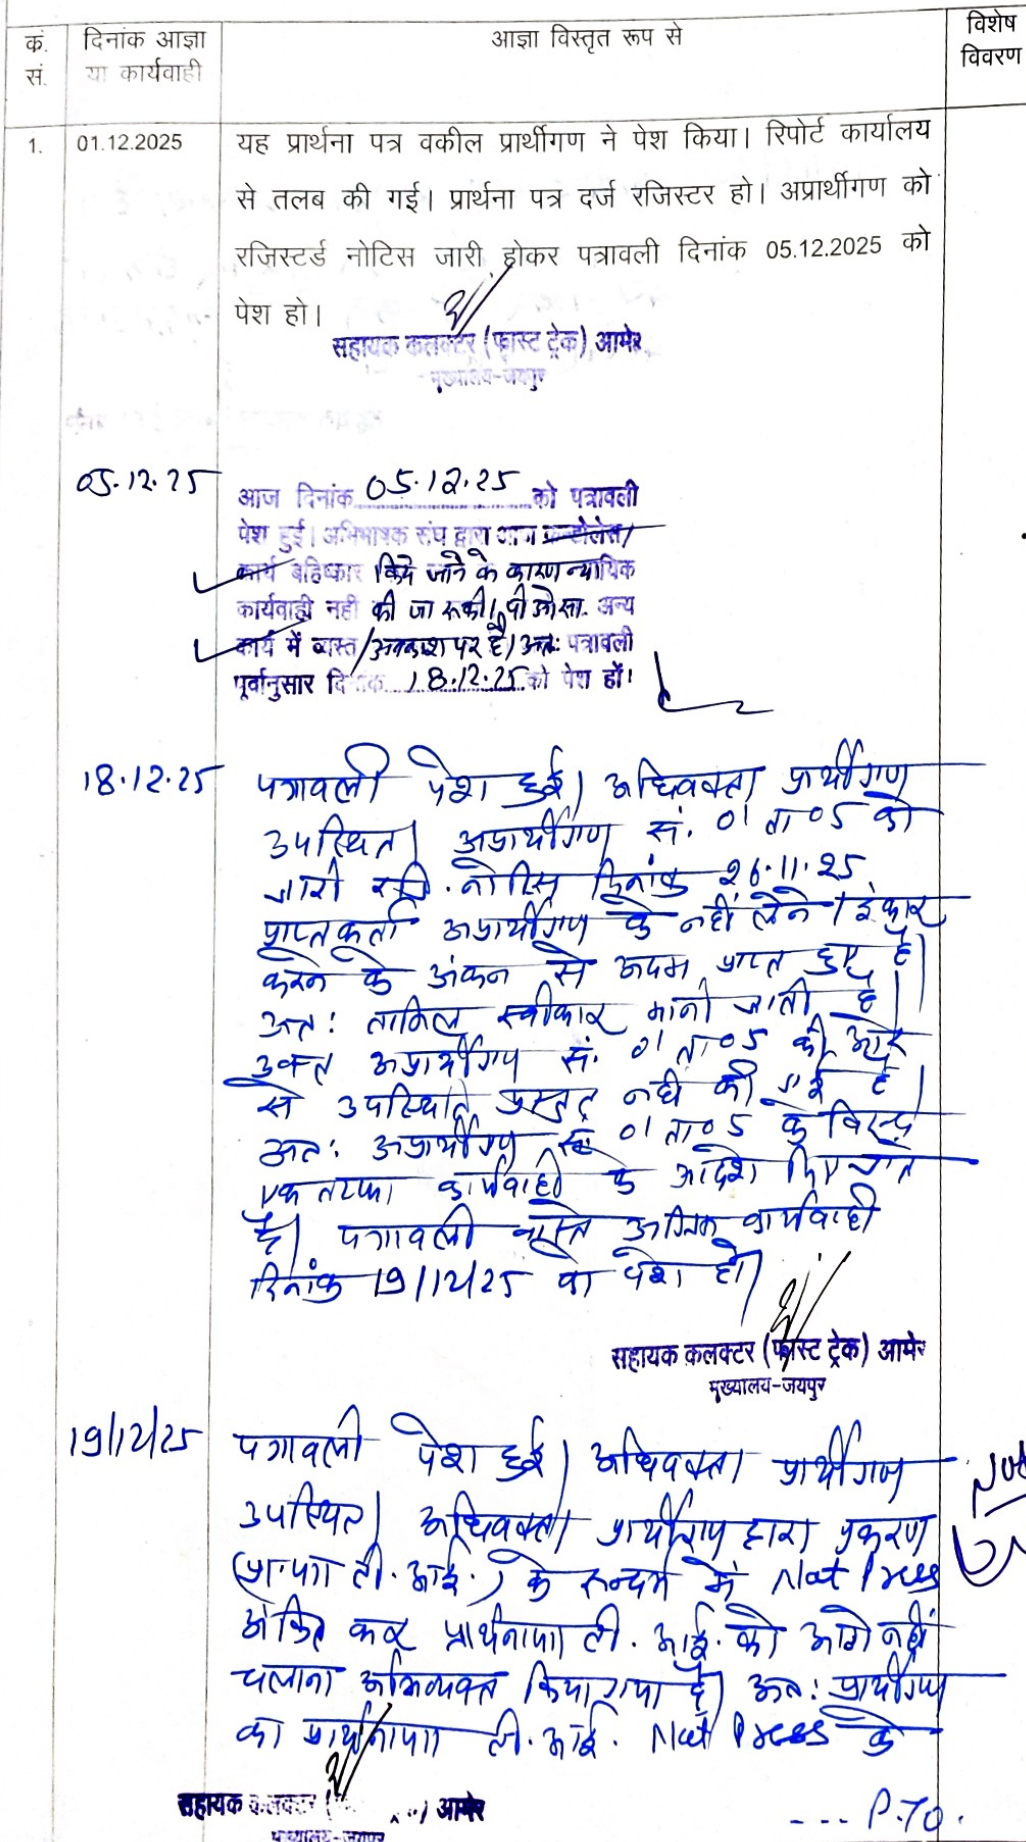 क्र. सं.
दिनांक आज्ञा या कार्यवाही
आज्ञा विस्तृत रूप से
विशेष विवरण
1. 01.12.2025 यह प्रार्थना पत्र वकील प्रार्थीगण ने पेश किया। रिपोर्ट कार्यालय
से तलब की गई। प्रार्थना पत्र दर्ज रजिस्टर हो। अप्रार्थीगण को
रजिस्टर्ड नोटिस जारी होकर पत्रावली दिनांक 05.12.2025 को
पेश हो।
सहायक कलक्टर (फास्ट ट्रेक) आमेर
मुख्यालय-जयपुर
05.12.25 आज दिनांक 05.12.25 को पत्रावली
पेश हुई। अभिभाषक संघ द्वारा आज कन्डोलेंस/
कार्य बहिष्कार किये जाने के कारण न्यायिक
कार्यवाही नही की जा सकी। पी ओ सा. अन्य
कार्य में व्यस्त/अवकाश पर है। अतः पत्रावली
पूर्वानुसार दिनांक 18.12.25 को पेश हों।
18.12.25 पत्रावली पेश हुई। अधिवक्ता प्रार्थीगण
उपस्थित। अप्रार्थीगण सं. 01 ता 05 को
जारी रजि. नोटिस दिनांक 26.11.25
प्राप्तकर्ता अप्रार्थीगण के नहीं लेने / इंकार
करने के अंकन से अदम प्राप्त हुए है।
अतः तामिल स्वीकार मानी जाती है।
उक्त अप्रार्थीगण सं. 01 ता 05 की ओर
से उपस्थिति प्रस्तुत नही की गई है।
अतः अप्रार्थीगण सं. 01 ता 05 के विरुद्ध
एकतरफा कार्यवाही के आदेश दिए जाते
है। पत्रावली वास्ते अग्रिम कार्यवाही
दिनांक 19/12/25 को पेश हो।
सहायक कलक्टर (फास्ट ट्रेक) आमेर
मुख्यालय-जयपुर
19/12/25 पत्रावली पेश हुई। अधिवक्ता प्रार्थीगण
उपस्थित। अधिवक्ता प्रार्थीगण द्वारा प्रकरण
(प्रा.पत्र टी.आई.) के सन्दर्भ में Not Press
अंकित कर प्रार्थनापत्र टी.आई. को आगे नहीं
चलाना अभिव्यक्त किया गया है। अतः प्रार्थीगण
का प्रार्थनापत्र टी.आई. Not Press के
सहायक कलक्टर ( ) आमेर
मुख्यालय-जयपुर
--- P.T.O.